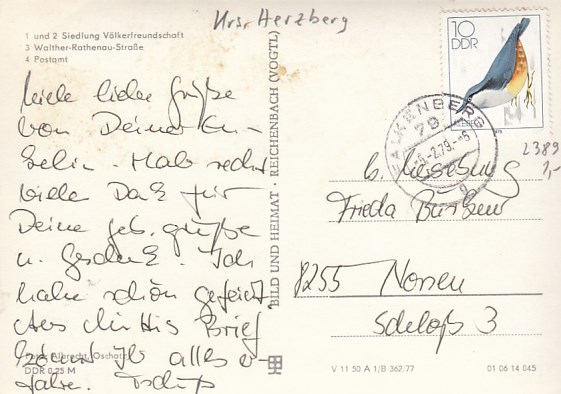 Krs. Herzberg
1 und 2 Siedlung Völkerfreundschaft
3 Walther-Rathenau-Straße
4 Postamt
Viele liebe Grüße
von Deiner En-
kelin. Hab recht
vielen Dank für
Deine geb. grüße
u. Geschenk. Ich
habe schön gefeiert
Aus Muttis Brief
könnt Ihr alles er-
fahren. Tschüß
Foto: Albrecht, Oschatz
DDR 0,25 M
BILD UND HEIMAT · REICHENBACH (VOGTL)
10
DDR
FALKENBERG
79
-2.79.-
2389
1,-
b. Merseburg
Frieda
8255 Nossen
Schloß 3
V 11 50 A 1/B 362/77
01 06 14 045